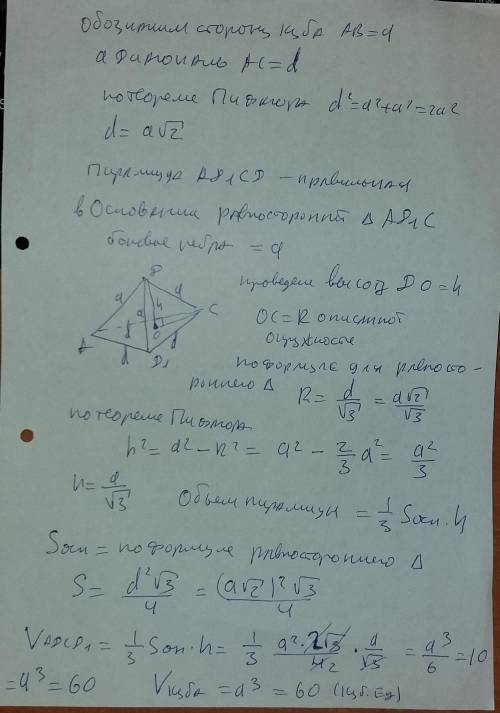 Обозначим сторону куба AB=a
а диагональ AC=d
по теореме Пифагора d²=a²+a²=2a²
d=a√2
Пирамида AD₁CD – правильная
в Основании равносторонний Δ AD₁C
боковые ребра = a
проведем высоту DO=h
OC=R описанной
окружности
по формуле для равносто-
роннего Δ R= d/√3 = a√2/√3
D
a a a h
A d O C
d d
D₁
по теореме Пифагора
h²=a²-R²= a² - 2/3 a² = a²/3
h= a/√3 Объем пирамиды = 1/3 Sосн·h
Sосн = по формуле равностороннего Δ
S= d²√3/4 = (a√2)²√3/4
VADCD₁= 1/3 Sосн·h= 1/3 a²·2√3/4 2 · a/√3 = a³/6 =10
=a³=60 Vкуба =a³ = 60 (куб.Ед)